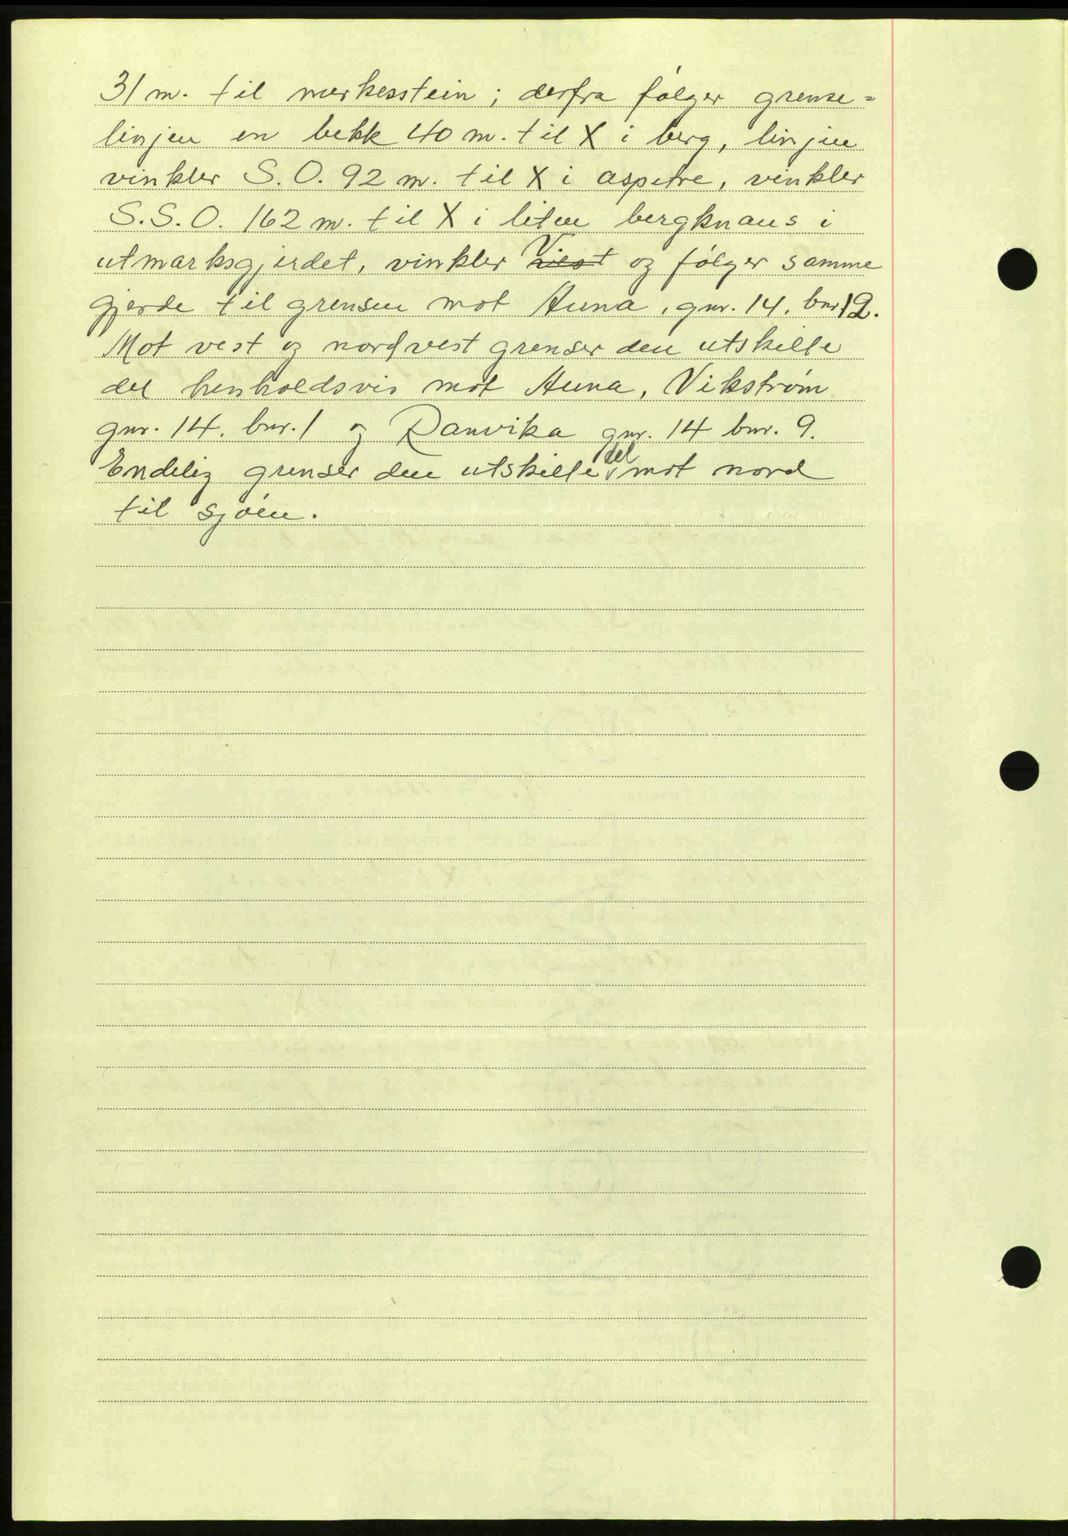 31 m. til merkesstein; derfra følger grense=
linjen en bekk 40 m. til X i berg, linjen
vinkler S.O. 92 m. til X i aspetre, vinkler
S.S.O. 162 m. til X i liten bergknaus i
utmarksgjerdet, vinkler Vest og følger samme
gjerde til grensen mot Huna, gnr. 14. bnr 12.
Mot vest og nordvest grenser den utskilte
del henholdsvis mot Huna, Vikstrøm
gnr. 14. bnr. 1 og Ranvika gnr. 14 bnr. 9.
Endelig grenser den utskilte del mot nord
til sjøen.